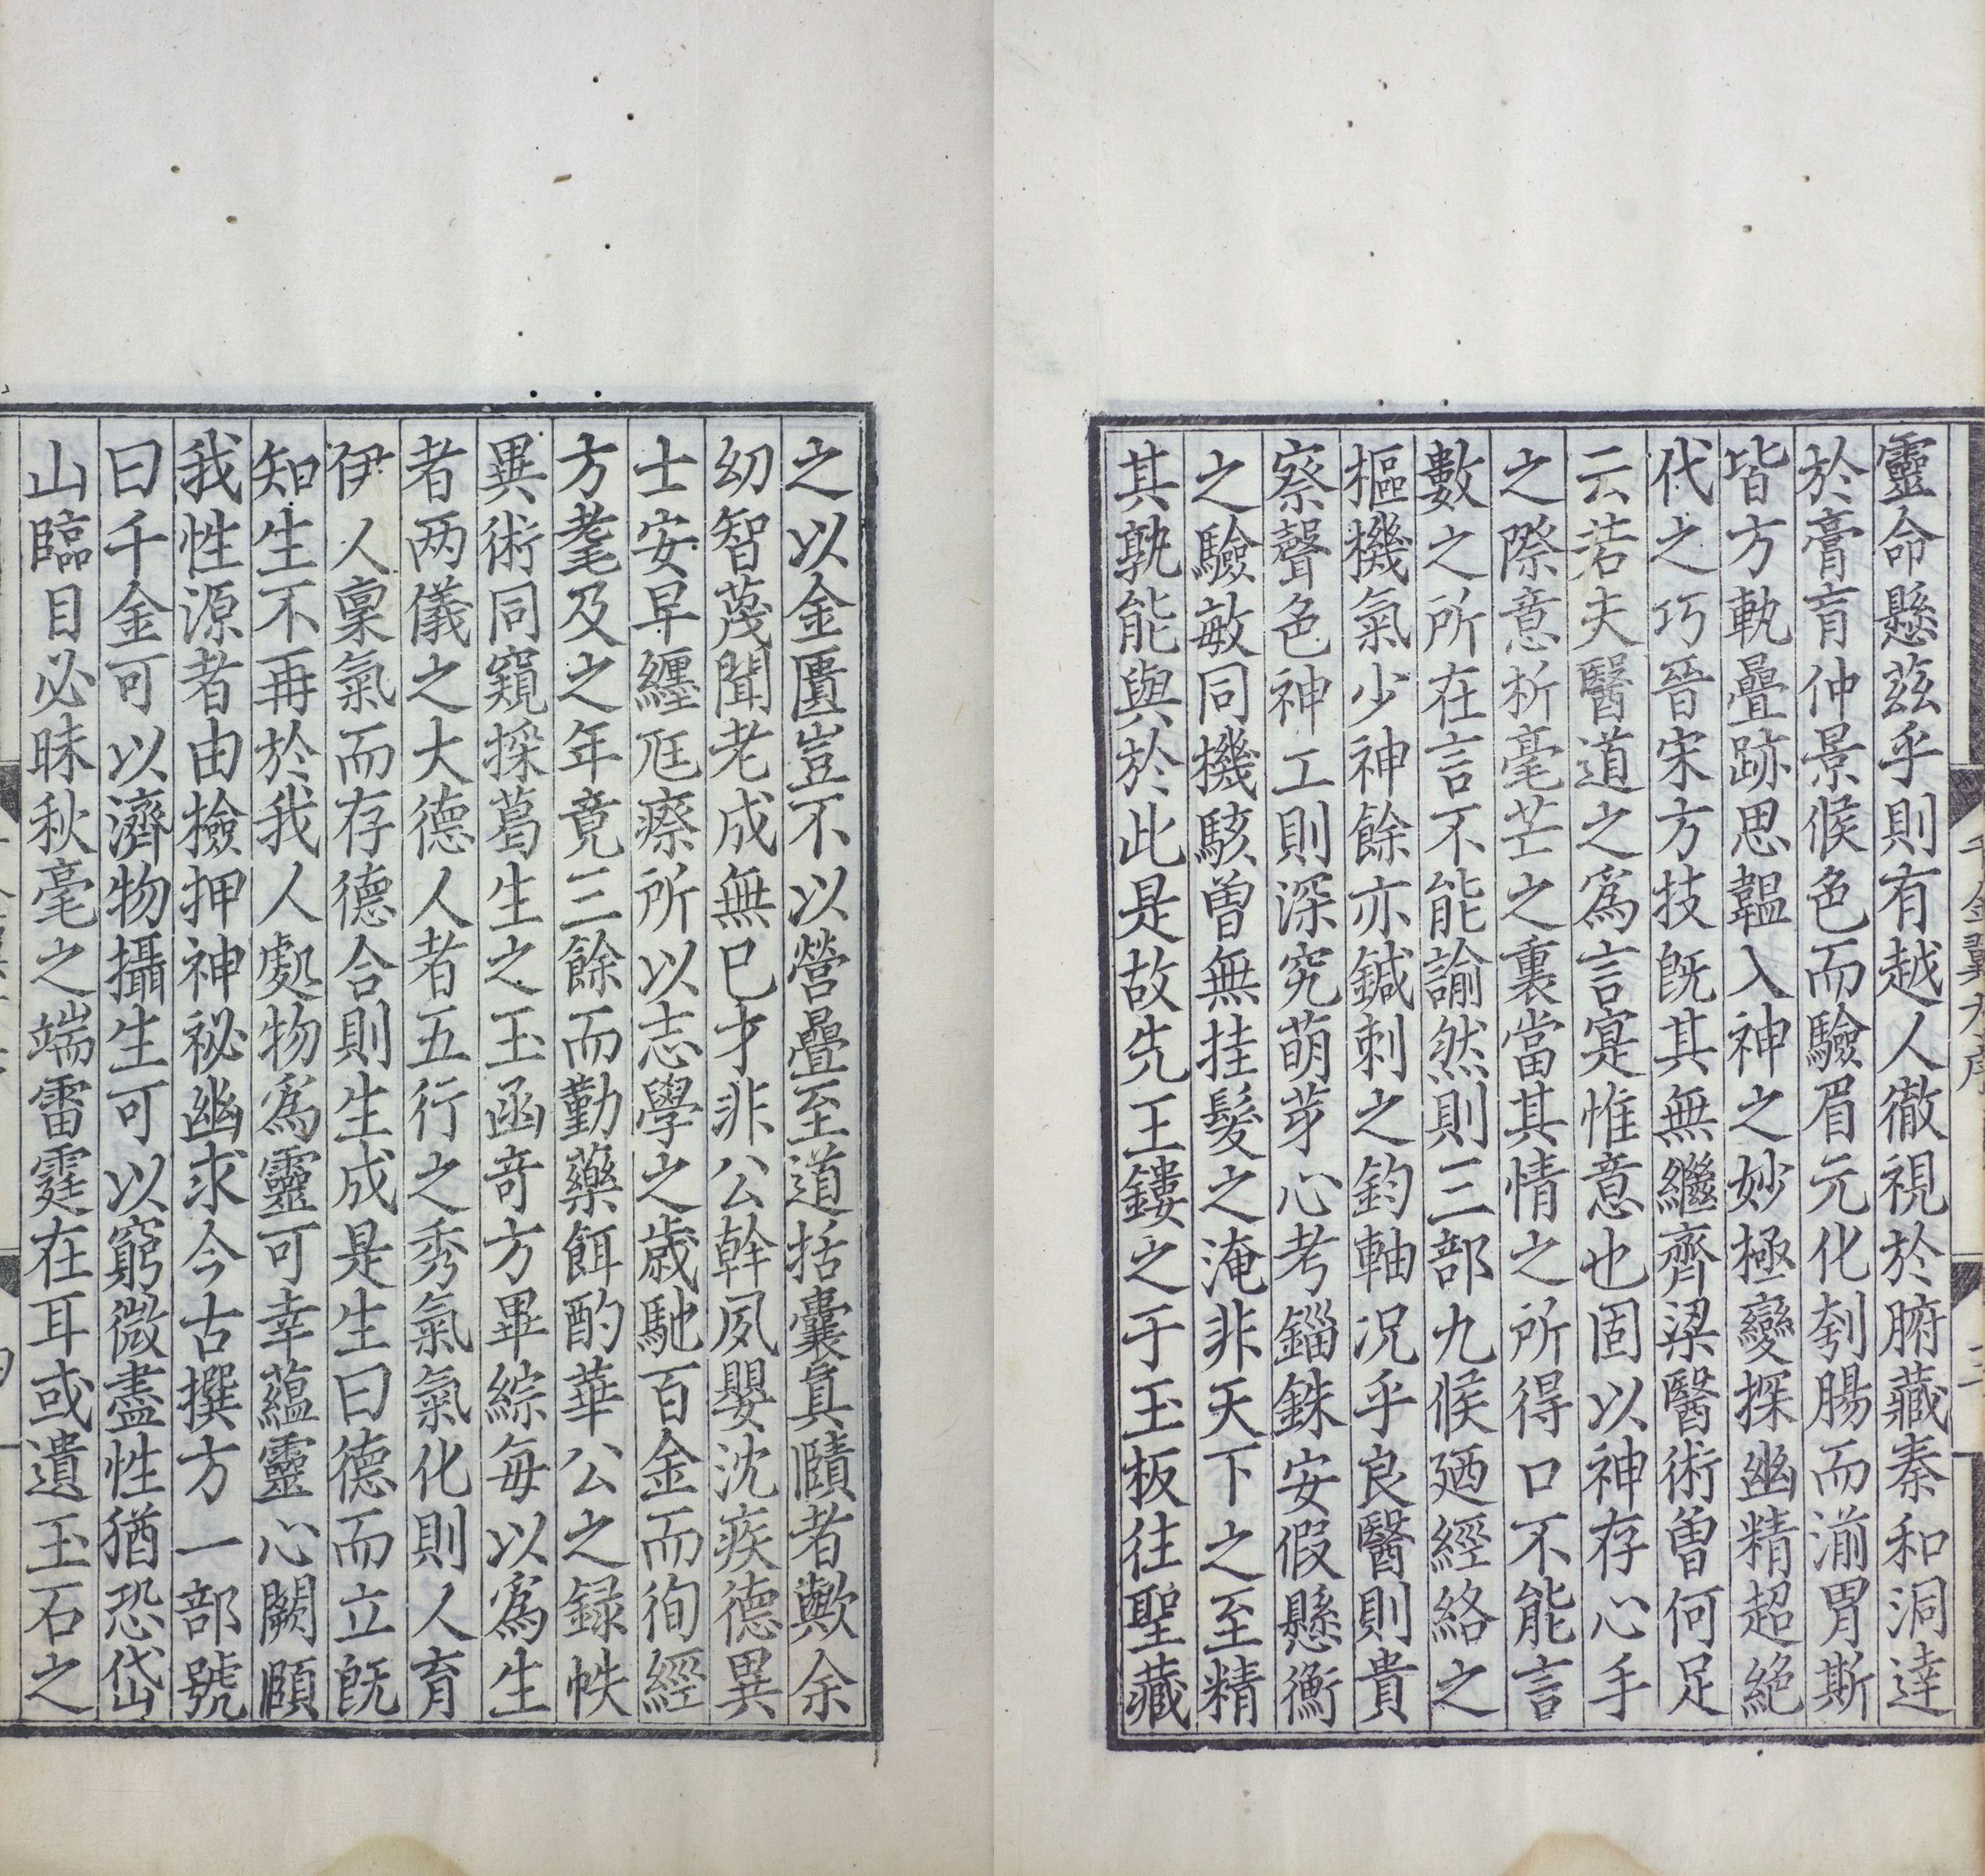 靈命懸茲乎則有越人徹視於腑藏秦和洞達
於膏肓仲景候色而驗眉元化刳腸而湔胃斯
皆方軌疊跡思韞入神之妙極變探幽精超絶
代之巧晉宋方技既其無繼齊梁醫術曽何足
云若夫醫道之爲言寔惟意也固以神存心手
之際意析毫芒之裏當其情之所得口不能言
數之所在言不能諭然則三部九候廼經絡之
樞機氣少神餘亦鍼刺之鈞軸况乎良醫則貴
察聲色神工則深究萌芽心考錙銖安假懸衡
之驗敏同機駭曽無挂髮之淹非天下之至精
其孰能與於此是故先王鏤之于玉板往聖藏
千金翼方序
二
之以金匱豈不以營疊至道括囊真賾者歟余
幼智蔑聞老成無已才非公幹夙嬰沈疾德異
士安早纏尫瘵所以志學之歲馳百金而徇經
方耄及之年竟三餘而勤藥餌酌華公之録帙
異術同窺採葛生之玉函奇方畢綜每以爲生
者两儀之大德人者五行之秀氣氣化則人育
伊人稟氣而存德合則生成是生曰德而立既
知生不再於我人處物爲靈可幸蘊靈心闕頤
我性源者由檢押神祕幽求今古撰方一部號
曰千金可以濟物攝生可以窮微盡性猶恐岱
山臨目必昧秋毫之端雷霆在耳或遺玉石之